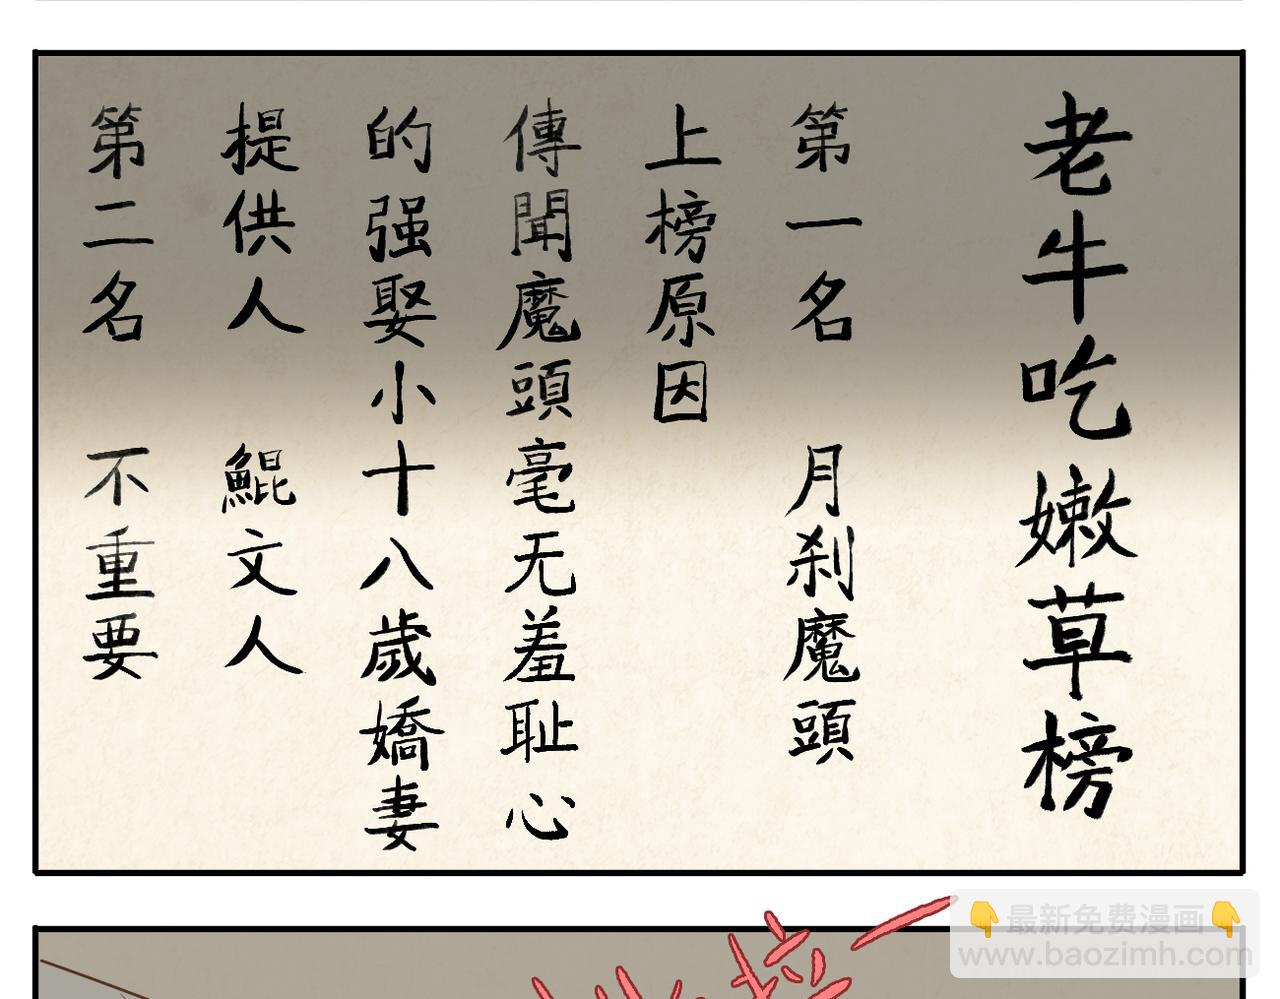 老牛吃嫩草榜
第一名 月刹魔頭
上榜原因
傳聞魔頭毫无羞耻心
的强娶小十八歲嬌妻
提供人 鯤文人
第二名 不重要
👇最新免费漫画👇
www.baozimh.com